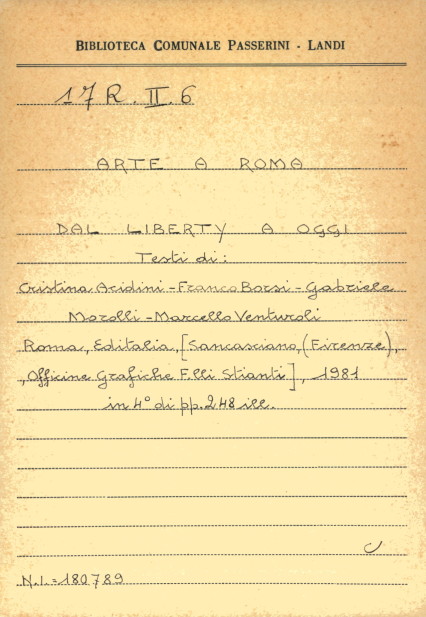 BIBLIOTECA COMUNALE PASSERINI - LANDI
17 R. II. 6
ARTE A ROMA
DAL LIBERTY A OGGI
Testi di:
Cristina Acidini - Franco Borsi - Gabriele
Morolli - Marcello Venturoli
Roma, Editalia, [Sancasciano, (Firenze),
, Officine Grafiche F.lli Stianti], 1981
in 4° di pp. 248 ill.
N.I. = 180789